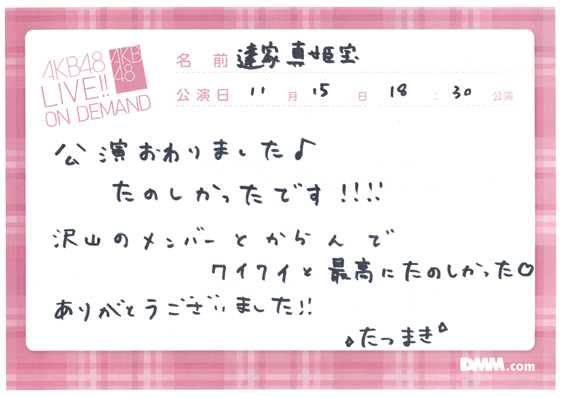 AKB48
LIVE!!
ON DEMAND
AKB
48
名前 達家真姫宝
公演日 11月15日 18:30公演
公演おわりました♪
たのしかったです!!!!
沢山のメンバーとからんで
ワイワイと最高にたのしかった♡
ありがとうございました!!
たつまき
DMM.com